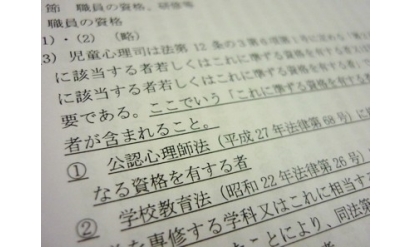 節 職員の資格、研修等
職員の資格
1)・(2) (略)
3) 児童心理司は法第 12 条の3第6項第1号に定める「第1
に該当する者若しくはこれに準ずる資格を有する者」
に該当する者若しくはこれに準ずる資格を有する
要である。ここでいう「これに準ずる資格を有する
者が含まれること。
① 公認心理師法（平成 27 年法律第 68 号）に
なる資格を有する者
② 学校教育法（昭和 22 年法律第 26 号）
を専修する学科又はこれに相当す
ことにより、同法第